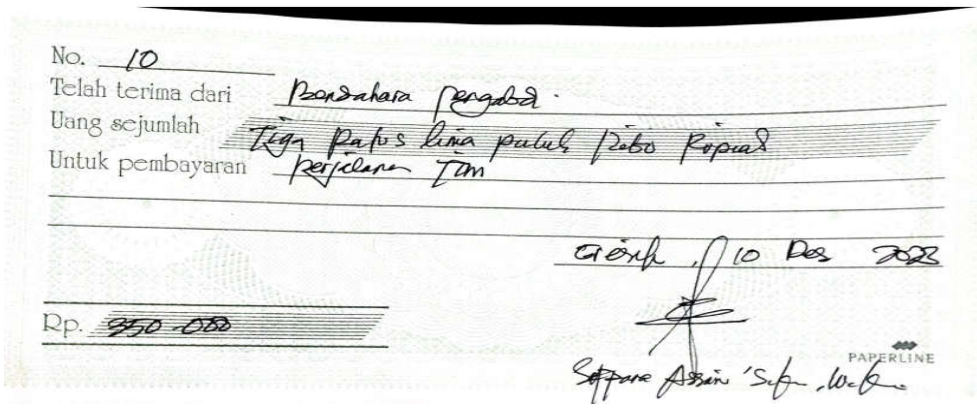 No. 10
Telah terima dari Bendahara Pengabdi.
Uang sejumlah Tiga Ratus lima puluh Ribo Ropiad
Untuk pembayaran perjalanan Tim
10 Des 2023
Rp. 350.000
PAPERLINE